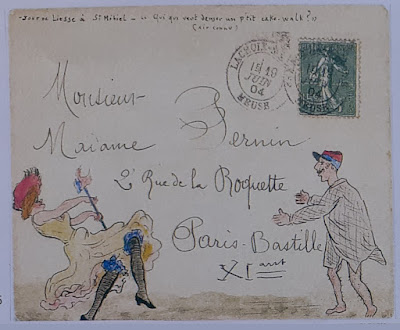 - Jour de Liesse à St Mihiel - « Qui qui veut danser un p'tit cake-walk? »
(air connu)
LACROIX
19
JUIN
04
MEUSE
04
Monsieur
Madame Pernin
2 Rue de la Roquette
Paris-Bastille
XIe